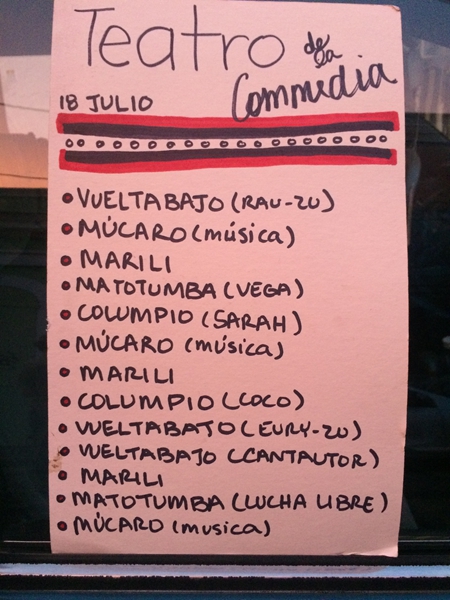 Teatro de la
Commedia
18 JULIO
• VUELTABAJO (RAU-ZU)
• MÚCARO (música)
• MARILI
• MATOTUMBA (VEGA)
• COLUMPIO (SARAH)
• MÚCARO (música)
• MARILI
• COLUMPIO (COCO)
• VUELTABATO (EURY-ZU)
• VUELTABAJO (CANTAUTOR)
• MARILI
• MATOTUMBA (LUCHA LIBRE)
• MÚCARO (musica)